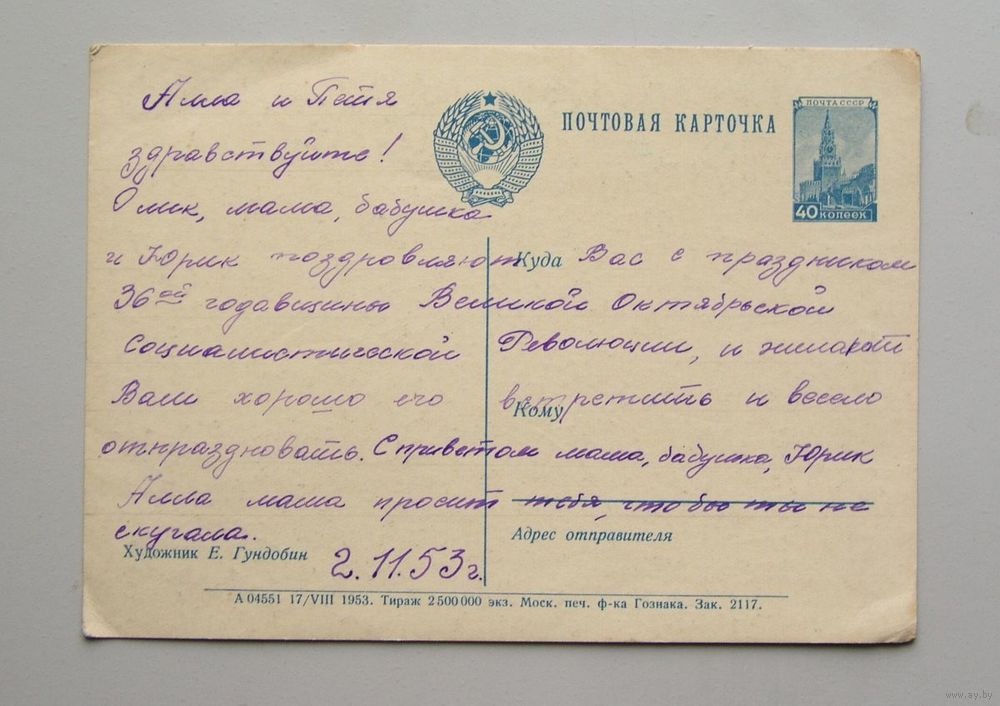 Алла и Петя
здравствуйте!
ПОЧТОВАЯ КАРТОЧКА
ПОЧТА СССР
40 КОПЕЕК
Омик, мама, бабушка
и Юрик поздровляют Вас с праздником
Куда
36ой годавщины Великой Октябрьской
социалистической Революции, и жилают
Вам хорошо его встретить и весело
Кому
отпраздновать. С приветом мама, бабушка, Юрик
Алла мама просит тебя, что бы ты не
скучала.
Адрес отправителя
Художник Е. Гундобин
2.11.53г.
А 04551 17/VIII 1953. Тираж 2 500 000 экз. Моск. печ. ф-ка Гознака. Зак. 2117.
www.ay.by